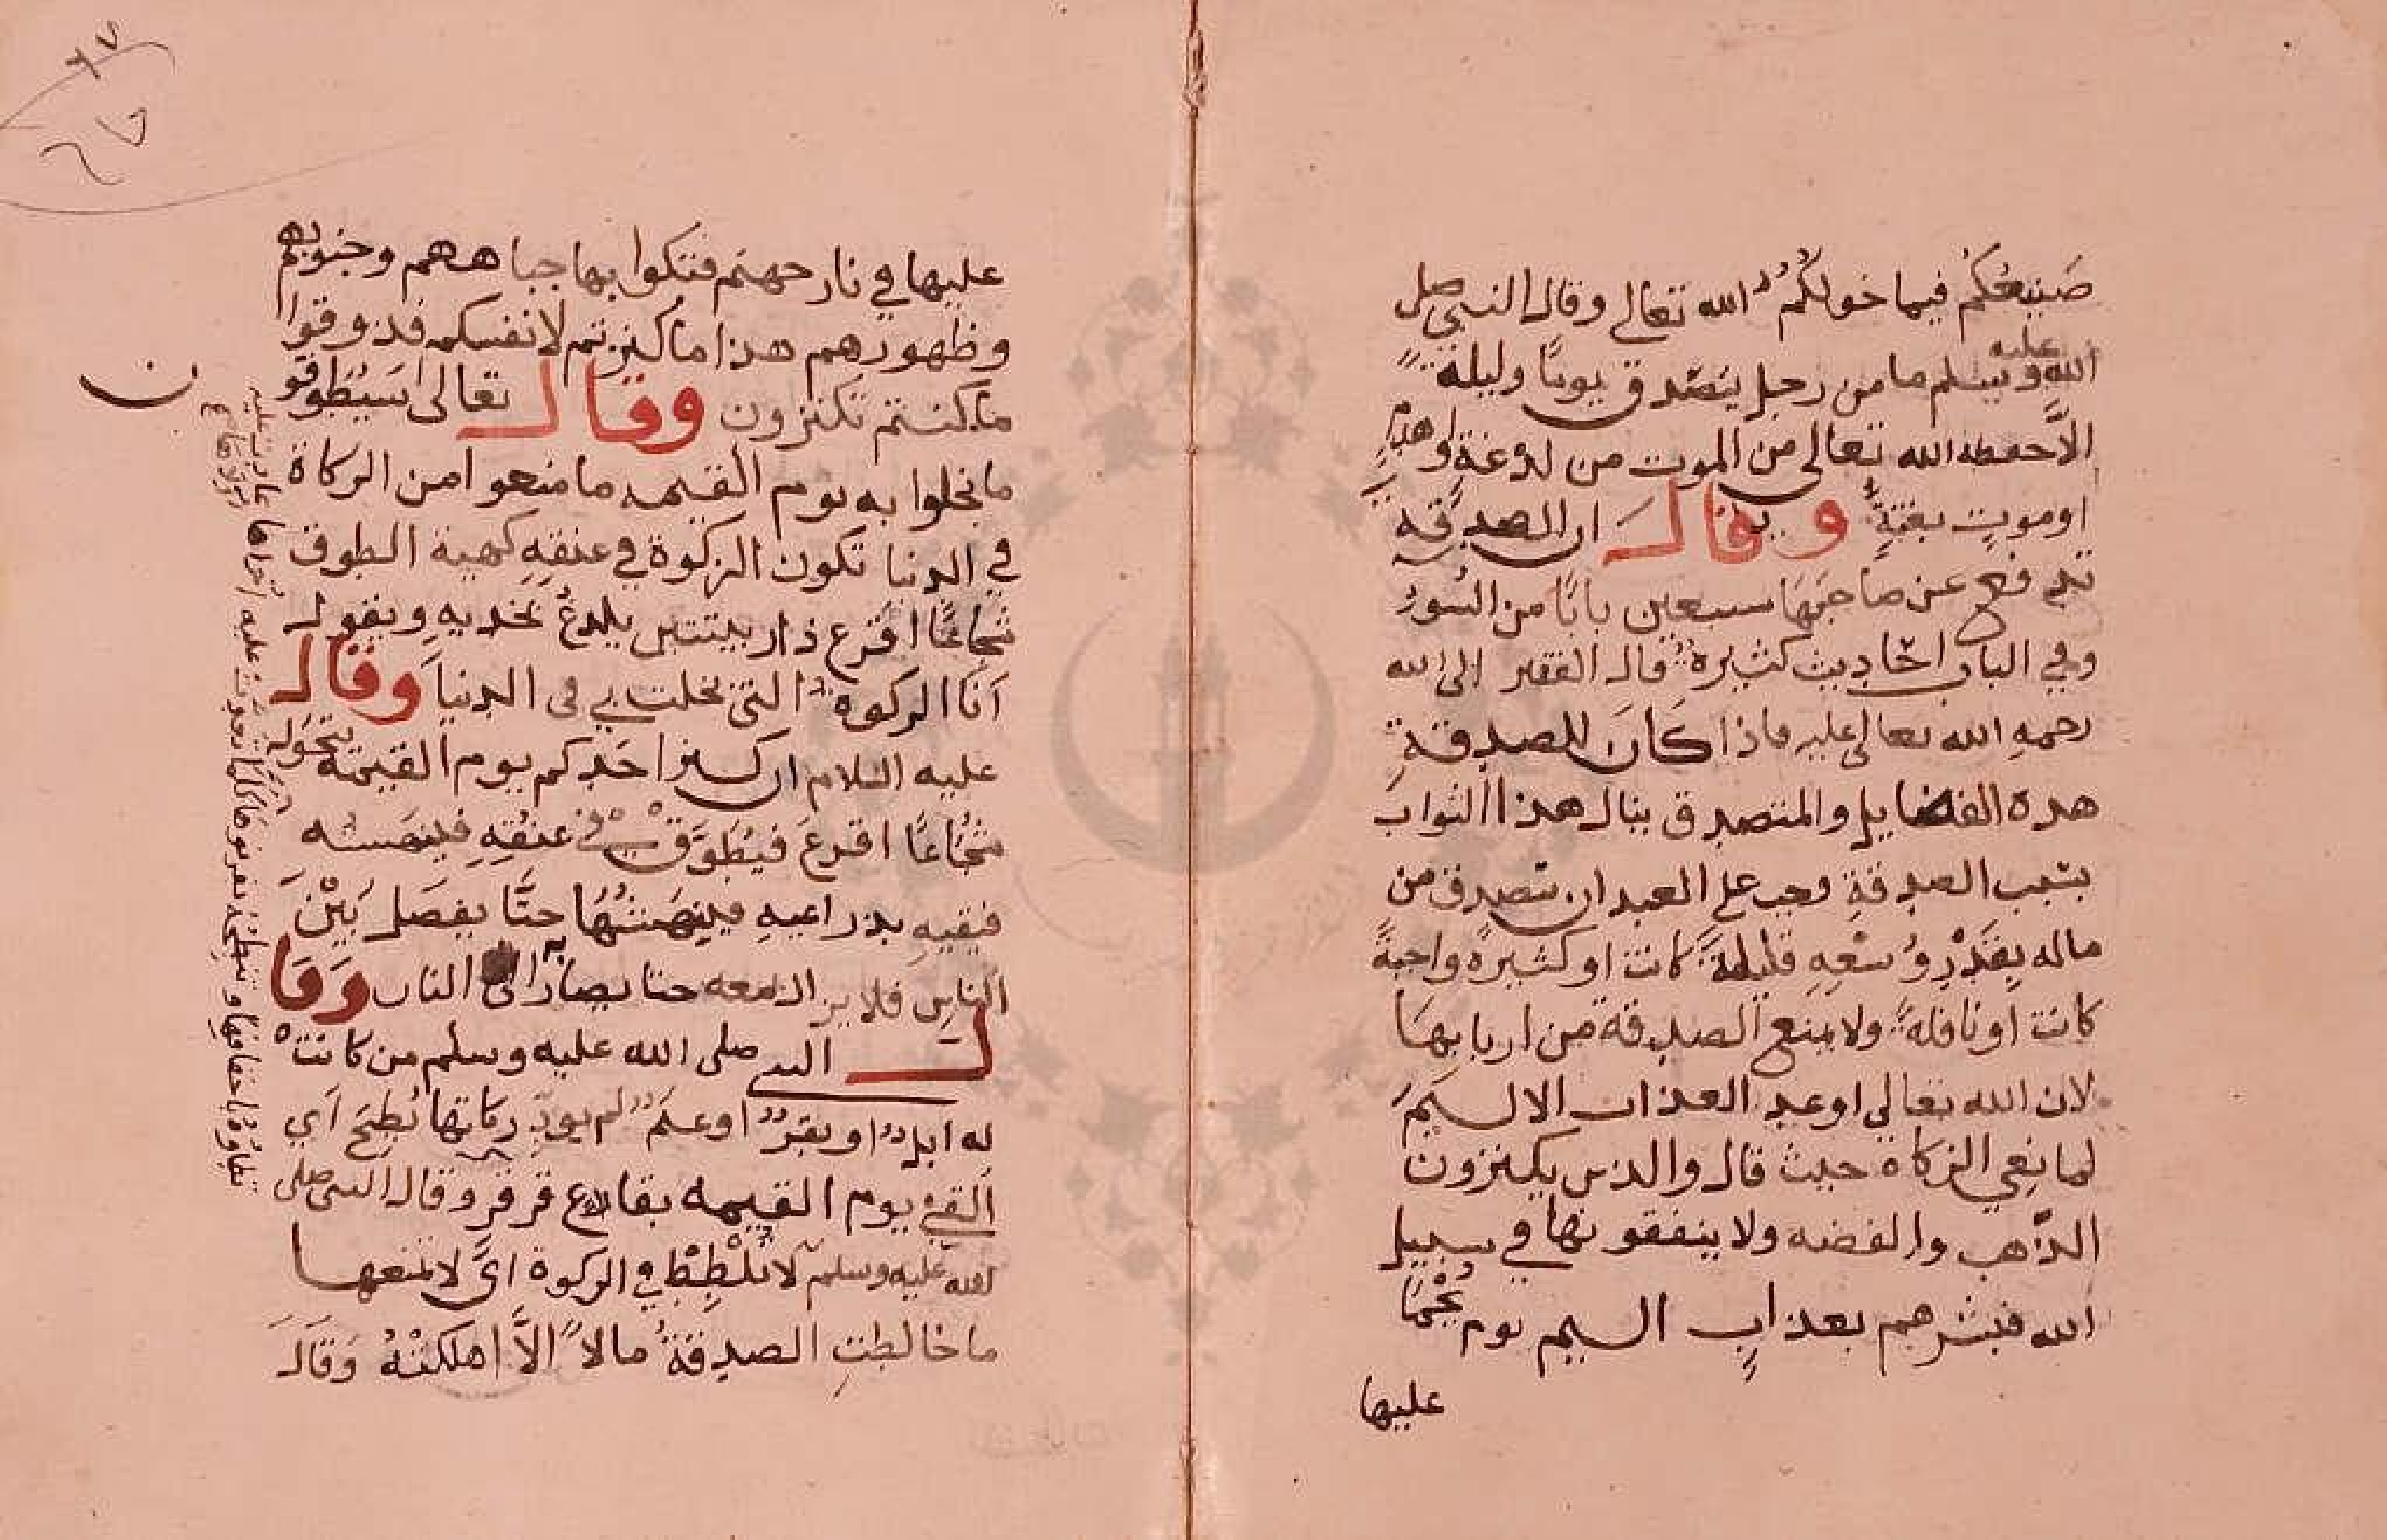 صنيعكم فيما خولكم الله تعالى وقال النبي صلى
الله عليه وسلم ما من رجل يتصدق يوما وليلة
الا حفظه الله تعالى من الموت من لدغة او هدم
او موت بغتة ويقال ان الصدقة
تدفع عن صاحبها سبعين بابا من السوء
وفي الباب احاديث كثيرة قال الفقير الى الله
رحمه الله تعالى عليه فاذا كان للصدقة
هذه الفضايل والمتصدق ينال هذا الثواب
بسبب الصدقة وجب على العبد ان يتصدق من
ماله بقدر وسعه قليلة كانت او كثيرة واجبة
كانت او نافلة ولا يمنع الصدقة من اربابها
لان الله تعالى اوعد العذاب الاليم
لمانعي الزكاة حيث قال والذين يكنزون
الذهب والفضه ولا ينفقونها في سبيل
الله فبشرهم بعذاب اليم يوم يحما
عليها
عليها في نار جهنم فتكوا بها جباههم وجنوبهم
وظهورهم هذا ما كنزتم لانفسكم فذوقوا
ما كنتم تكنزون وقال تعالى سيطوقون
ما بخلوا به يوم القيمه ما منعوا من الزكاة
في الدنيا تكون الزكوة في عنقه كهية الطوق
شجاعا اقرع ذا زبيبتين يلدغ بخديه ويقول
انا الزكوة التي بخلت بي في الدنيا وقال
عليه السلام ان كنز احدكم يوم القيمة يتحول
شجاعا اقرع فيطوق في عنقه فينهسه
فيقيه بذراعيه فينهشها حتا يفصل بين
الناس فلا يزال معه حتا يصار به الى النار وقا
ل النبي صلى الله عليه وسلم من كانت
له ابل او بقر او غنم لم يود زكاتها بطح اي
القي يوم القيمه بقاع قرقر وقال النبي صلى
الله عليه وسلم لا تلطط في الزكوة اي لا تمنعها
ما خالطت الصدقة مالا الا اهلكته وقال